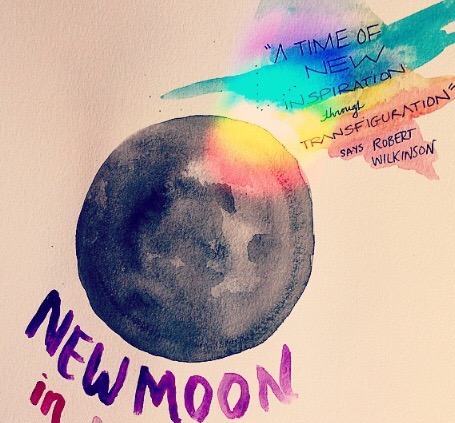 "A TIME OF
NEW
INSPIRATION
through
TRANSFIGURATION"
SAYS ROBERT
WILKINSON
NEW MOON
in